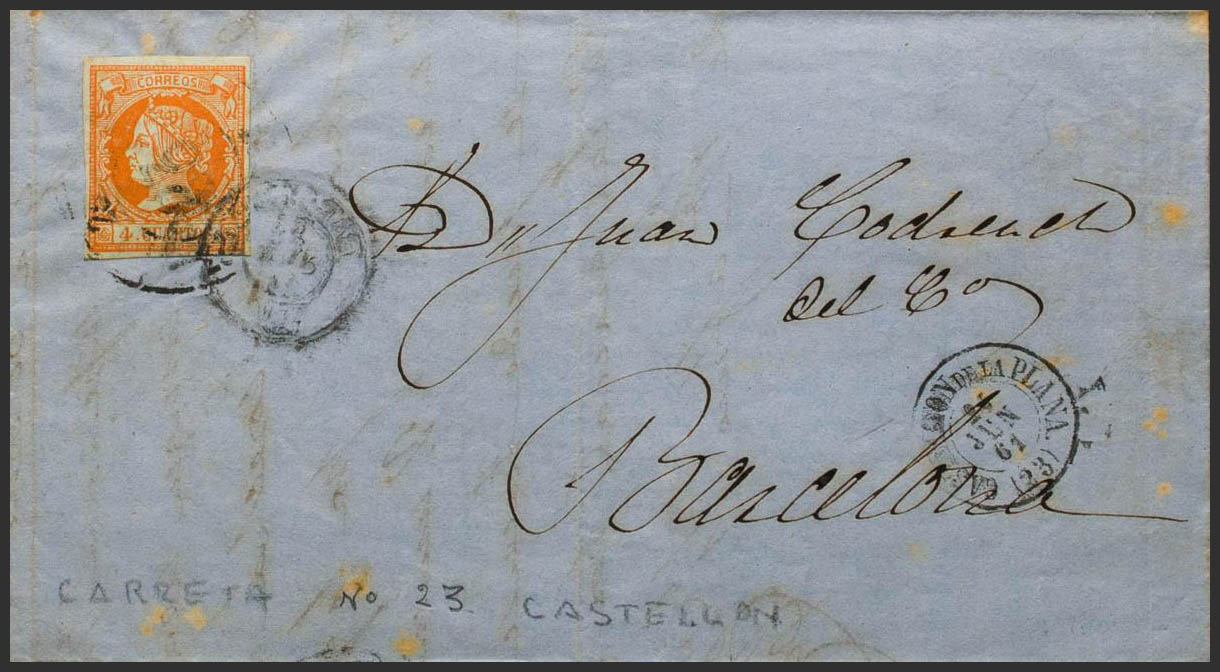 CORREOS
4. CUARTOS
D. Juan Codrench
del Co
Barcelona
CASTELLON DE LA PLANA.
JUN
61
(23)
CARRETA No 23. CASTELLON